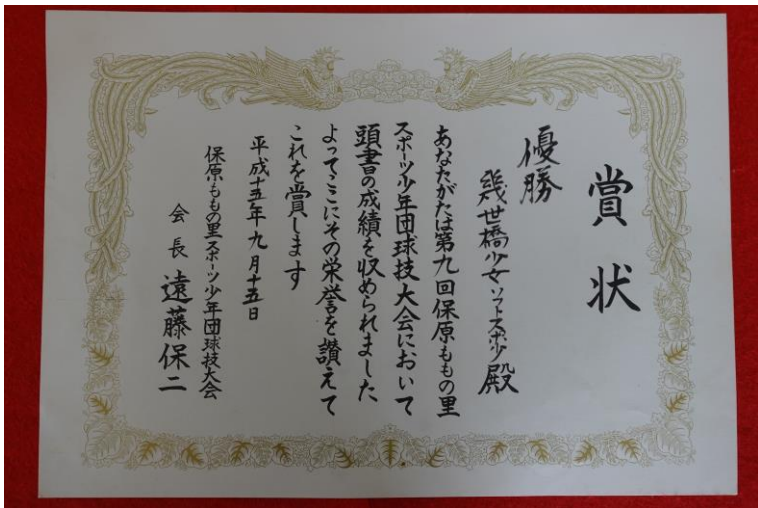 賞状
優勝
幾世橋少女ソフトスポ少殿
あなたがたは第九回保原ももの里
スポーツ少年団球技大会において
頭書の成績を収められました
よってここにその栄誉を讃えて
これを賞します
平成十五年九月十五日
保原ももの里スポーツ少年団球技大会
会長 遠藤保二